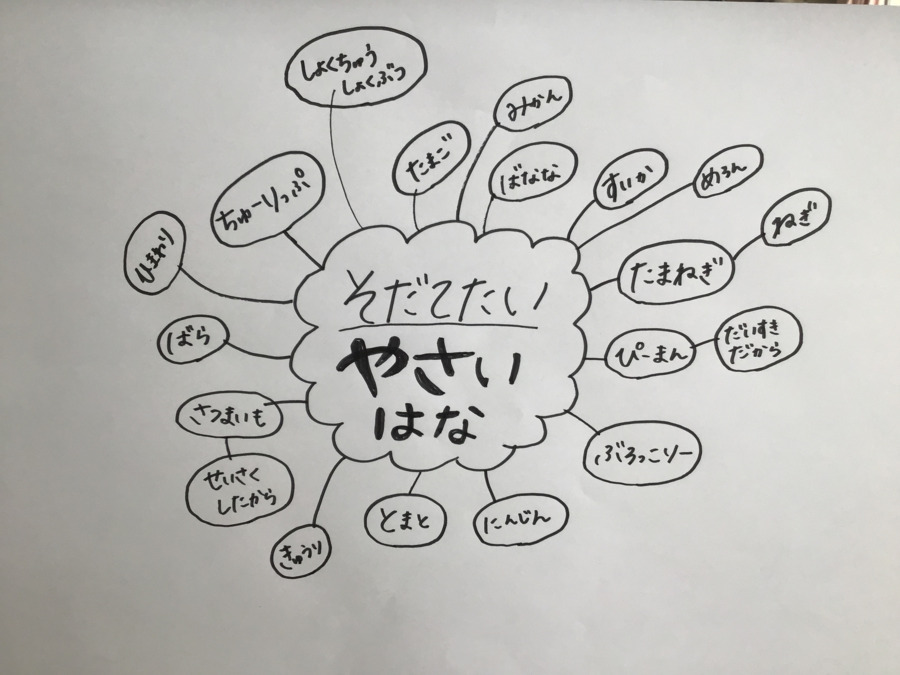 しょくちゅう
しょくぶつ
みかん
たまご
ばなな
すいか
めろん
ちゅーりっぷ
ねぎ
ひまわり
たまねぎ
そだてたい
やさい
はな
ばら
ぴーまん
だいすき
だから
さつまいも
せいさく
したから
ぶろっこりー
きゅうり
とまと
にんじん